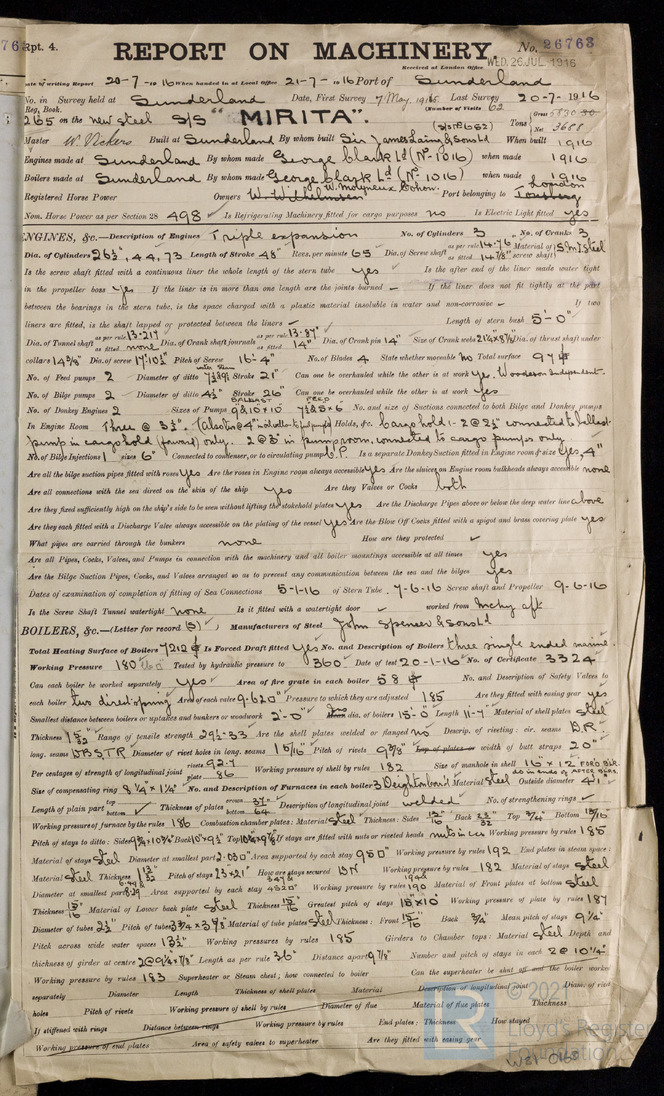 Rpt. 4.
REPORT ON MACHINERY.
No. 26763
Received at London Office WED. 26 JUL 1916
Date of writing Report 20-7-1916 When handed in at Local Office 21-7-1916 Port of Sunderland
No. in Survey held at Sunderland Date, First Survey 7 May 1915 Last Survey 20-7-1916
Reg. Book. (Number of Visits 62
2165 on the new steel S/S "MIRITA". (S/S No 652) Tons Gross 5830 Net 3688
Master W. Vickers Built at Sunderland By whom built Sir James Laing & Sons Ld When built 1916
Engines made at Sunderland By whom made George Clark Ld (No 1016) when made 1916
Boilers made at Sunderland By whom made George Clark Ld (No 1016) when made 1916
Registered Horse Power Owners W. Wilhelmsen Port belonging to London
Nom. Horse Power as per Section 28 498 Is Refrigerating Machinery fitted for cargo purposes no Is Electric Light fitted yes
ENGINES, &c.—Description of Engines Triple expansion No. of Cylinders 3 No. of Cranks 3
Dia. of Cylinders 26½", 44, 73 Length of Stroke 48" Revs. per minute 65 Dia. of Screw shaft as per rule 14.76 as fitted 14⅞" Material of screw shaft S.M. Steel
Is the screw shaft fitted with a continuous liner the whole length of the stern tube yes Is the after end of the liner made water tight
in the propeller boss yes If the liner is in more than one length are the joints burned If the liner does not fit tightly at the part
between the bearings in the stern tube, is the space charged with a plastic material insoluble in water and non-corrosive If two
liners are fitted, is the shaft lapped or protected between the liners Length of stern bush 5'-0"
Dia. of Tunnel shaft as per rule 13.217 as fitted none Dia. of Crank shaft journals as per rule 13.87" as fitted 14" Dia. of Crank pin 14" Size of Crank webs Dia. of thrust shaft under
collars 14⅜" Dia. of screw 17'10½" Pitch of Screw 16'-4" No. of Blades 4 State whether moveable no Total surface 97
No. of Feed pumps 2 Diameter of ditto Stroke 21" Can one be overhauled while the other is at work yes. Woodeson Independent.
No. of Bilge pumps 2 Diameter of ditto 4½" Stroke 26" Can one be overhauled while the other is at work yes
No. of Donkey Engines 2 Sizes of Pumps BALLAST 9 & 10 x 10 FEED 7½ & 5 x 6 No. and size of Suctions connected to both Bilge and Donkey pumps
In Engine Room Three @ 3½". In Holds, &c. Cargo hold :- 2 @ 2½" connected to ballast
pump in cargo hold (forward) only. 2 @ 3" in pump room, connected to cargo pumps only
No. of Bilge Injections 1 sizes 6" Connected to condenser, or to circulating pump C.P. Is a separate Donkey Suction fitted in Engine room & size yes, 4"
Are all the bilge suction pipes fitted with roses yes Are the roses in Engine room always accessible yes Are the sluices on Engine room bulkheads always accessible none
Are all connections with the sea direct on the skin of the ship yes Are they Valves or Cocks both
Are they fixed sufficiently high on the ship's side to be seen without lifting the stokehold plates yes Are the Discharge Pipes above or below the deep water line above
Are they each fitted with a Discharge Valve always accessible on the plating of the vessel yes Are the Blow Off Cocks fitted with a spigot and brass covering plate yes
What pipes are carried through the bunkers none How are they protected
Are all Pipes, Cocks, Valves, and Pumps in connection with the machinery and all boiler mountings accessible at all times yes
Are the Bilge Suction Pipes, Cocks, and Valves arranged so as to prevent any communication between the sea and the bilges yes
Dates of examination of completion of fitting of Sea Connections 5-1-16 of Stern Tube 7-6-16 Screw shaft and Propeller 9-6-16
Is the Screw Shaft Tunnel watertight none Is it fitted with a watertight door worked from Mchy aft
BOILERS, &c.—(Letter for record (S)) Manufacturers of Steel John Spencer & Sons Ld
Total Heating Surface of Boilers 7212 Is Forced Draft fitted yes No. and Description of Boilers three single ended marine
Working Pressure 180 Tested by hydraulic pressure to 360 Date of test 20-1-16 No. of Certificate 3324
Can each boiler be worked separately yes Area of fire grate in each boiler 58 No. and Description of Safety Valves to
each boiler two direct spring Area of each valve 9.620" Pressure to which they are adjusted 185 Are they fitted with easing gear yes
Smallest distance between boilers or uptakes and bunkers or woodwork 2'-0" dia. of boilers 15'-0" Length 11'-7" Material of shell plates steel
Thickness 1 5/32 Range of tensile strength 29½-33 Are the shell plates welded or flanged no Descrip. of riveting: cir. seams D.R.
long. seams DBSTR Diameter of rivet holes in long. seams 1 5/16" Pitch of rivets 9⅜" Lap of plates or width of butt straps 20"
Per centages of strength of longitudinal joint rivets 92.7 plate 86 Working pressure of shell by rules 182 Size of manhole in shell 16" x 12"
Size of compensating ring 8¼ x 1¼" No. and Description of Furnaces in each boiler 3 Deighton Material steel Outside diameter
Length of plain part top bottom Thickness of plates crown bottom Description of longitudinal joint welded No. of strengthening rings
Working pressure of furnace by the rules 186 Combustion chamber plates: Material Thickness: Sides Back Top ¾" Bottom
Pitch of stays to ditto: Sides Back 10" x 9½ Top If stays are fitted with nuts or riveted heads nuts in ccs Working pressure by rules 185
Material of stays steel Diameter at smallest part 2.030" Area supported by each stay 950" Working pressure by rules 192 End plates in steam space:
Material steel Thickness 1 3/32 Pitch of stays 23 x 21" How are stays secured DN Working pressure by rules 182 Material of stays steel
Diameter at smallest part Area supported by each stay Working pressure by rules 190 Material of Front plates at bottom steel
Thickness 15/16" Material of Lower back plate steel Thickness 15/16 Greatest pitch of stays Working pressure of plate by rules 187
Diameter of tubes 2½" Pitch of tubes 3¾ x 3⅝" Material of tube plates steel Thickness: Front 15/16 Back ¾" Mean pitch of stays 9¼"
Pitch across wide water spaces 13½" Working pressures by rules 185 Girders to Chamber tops: Material steel Depth and
thickness of girder at centre 2@9¼ x ⅞" Length as per rule 36" Distance apart 9⅞" Number and pitch of stays in each 2 @ 10¼"
Working pressure by rules 183 Superheater or Steam chest; how connected to boiler Can the superheater be shut off and the boiler worked
separately Diameter Length Thickness of shell plates Material Description of longitudinal joint Diam. of rivet
holes Pitch of rivets Working pressure of shell by rules Diameter of flue Material of flue plates Thickness
If stiffened with rings Distance between rings Working pressure by rules End plates: Thickness How stayed
Working pressure of end plates Area of safety valves to superheater Are they fitted with easing gear
© 2021
Lloyd's Register
Foundation
W21-0160